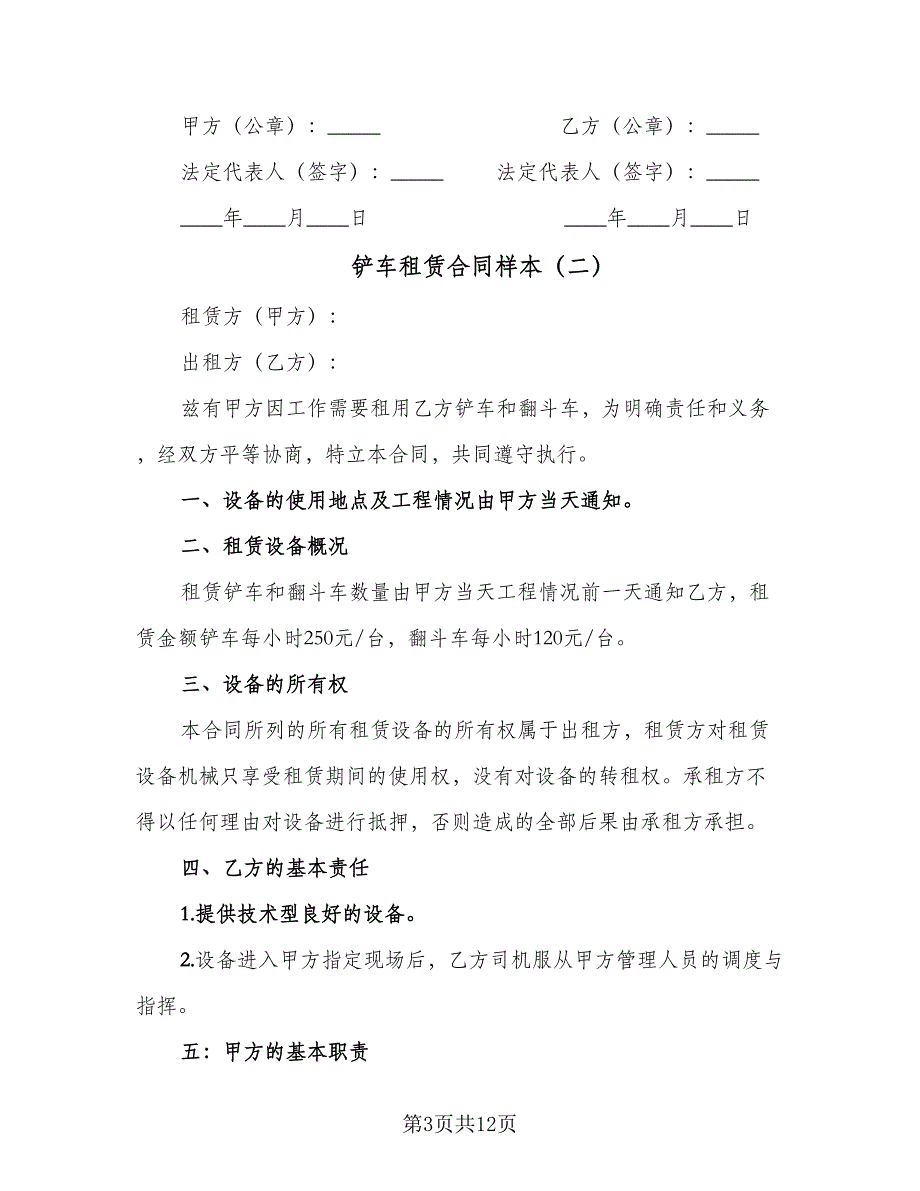 甲方（公章）：_____ 乙方（公章）：_____
法定代表人（签字）：_____ 法定代表人（签字）：_____
____年____月____日 ____年____月____日
铲车租赁合同样本（二）
租赁方（甲方）：
出租方（乙方）：
兹有甲方因工作需要租用乙方铲车和翻斗车，为明确责任和义务
，经双方平等协商，特立本合同，共同遵守执行。
一、设备的使用地点及工程情况由甲方当天通知。
二、租赁设备概况
租赁铲车和翻斗车数量由甲方当天工程情况前一天通知乙方，租
赁金额铲车每小时250元/台，翻斗车每小时120元/台。
三、设备的所有权
本合同所列的所有租赁设备的所有权属于出租方，租赁方对租赁
设备机械只享受租赁期间的使用权，没有对设备的转租权。承租方不
得以任何理由对设备进行抵押，否则造成的全部后果由承租方承担。
四、乙方的基本责任
1.提供技术型良好的设备。
2.设备进入甲方指定现场后，乙方司机服从甲方管理人员的调度与
指挥。
五：甲方的基本职责
第3页共12页